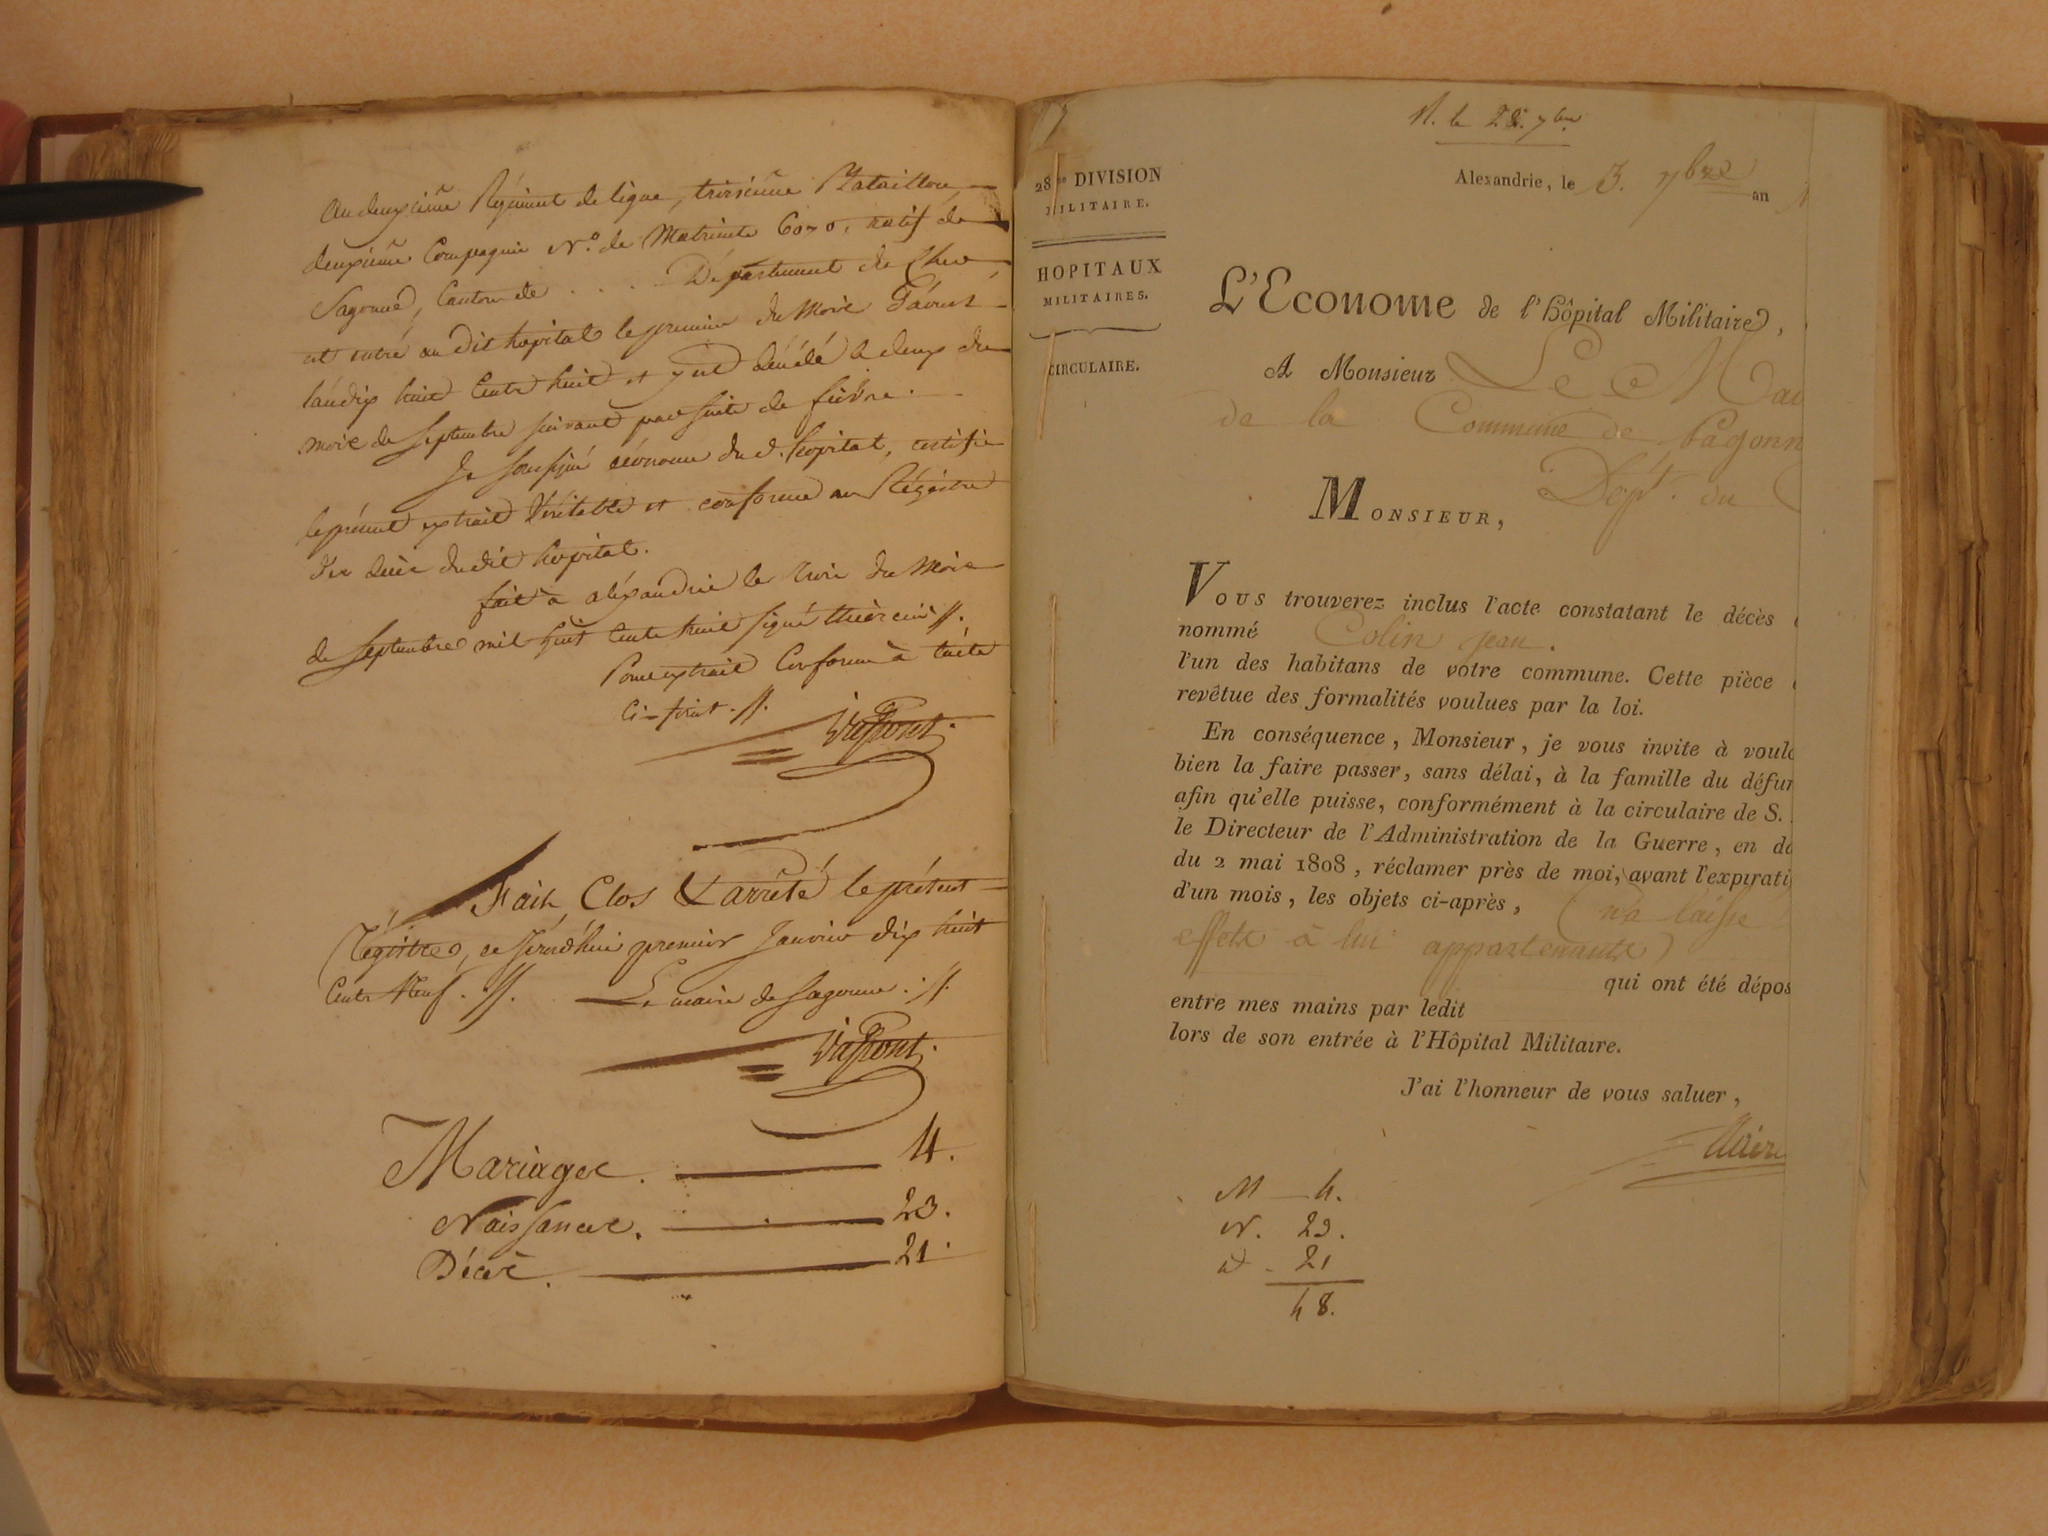 au deuxième Régiment de ligne, troisième Bataillon,
deuxième Compagnie N.º de Matricule 6070, natif de
Sagonne, Canton de . . . . Département du Cher,
est entré au dit hopital le premier du Mois D'aoust
l'an dix huit Cents huit et y est décédé le deux du
mois de Septembre suivant par suite de fièvre.
Je soussigné économe du d. hopital, certifie
le présent extrait Véritable et conforme au Régistre
des decès du dit hopital.
fait à aléxandrie le trois du Mois
de Septembre mil huit Cents huit signé
Pour extrait Conforme à l'acte
Ci-joint.
Fait, Clos & arrêté le présent
Régistre, ce jourd'hui premier Janvier dix huit
Cents Neuf. Le maire de Sagonne.
Mariages. 4.
Naissances. 23.
Décès. 21.
28.me DIVISION
MILITAIRE.
HOPITAUX
MILITAIRES.
CIRCULAIRE.
R. le 28. 7bre
Alexandrie, le 3. 7bre an
L'Econome de l'hôpital Militaire,
A Monsieur Le Mai
de la Commune de Sagonn
Dép.t du C
MONSIEUR,
VOUS trouverez inclus l'acte constatant le décès
nommé Colin jean.
l'un des habitans de votre commune. Cette pièce
revêtue des formalités voulues par la loi.
En conséquence, Monsieur, je vous invite à voulo
bien la faire passer, sans délai, à la famille du défun
afin qu'elle puisse, conformément à la circulaire de S.
le Directeur de l'Administration de la Guerre, en da
du 2 mai 1808, réclamer près de moi, avant l'expirati
d'un mois, les objets ci-après, (n'a laissé
effets à lui appartenants)
qui ont été dépos
entre mes mains par ledit
lors de son entrée à l'Hôpital Militaire.
J'ai l'honneur de vous saluer,
M 4.
N. 23.
D 21
48.